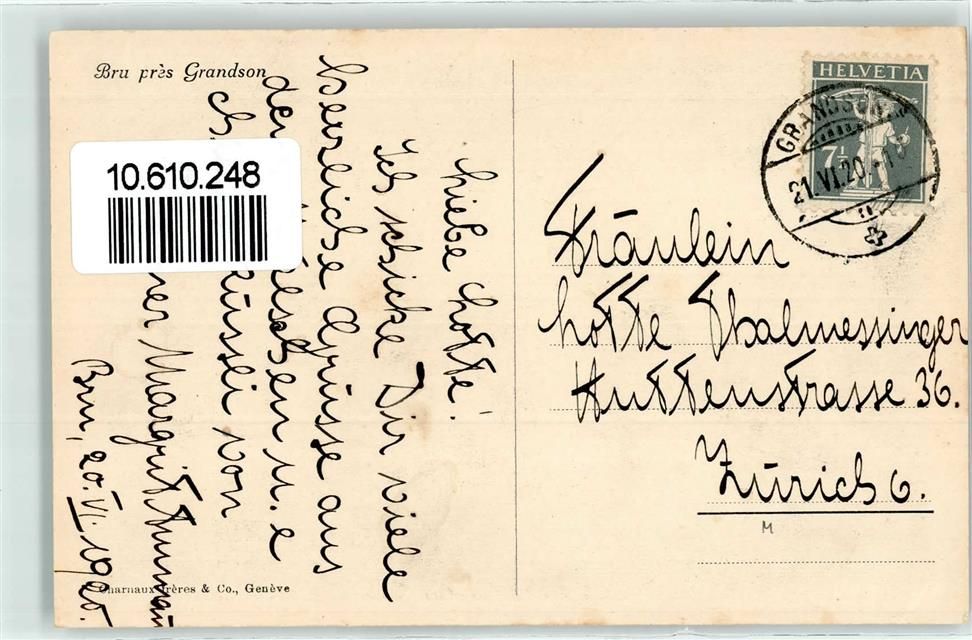 Bru près Grandson
Liebe Lotte!
Ich schicke Dir viele
herzliche Grüsse aus
der Welschen u. e
von
Margrit
Bru, 20. VI. 1920.
Charnaux Frères & Co., Genève
10.610.248
HELVETIA
7½
GRANDSON
21.VI.20.-1
Fräulein
Lotte Thalmessinger
Huttenstrasse 36.
Zürich 6.
M